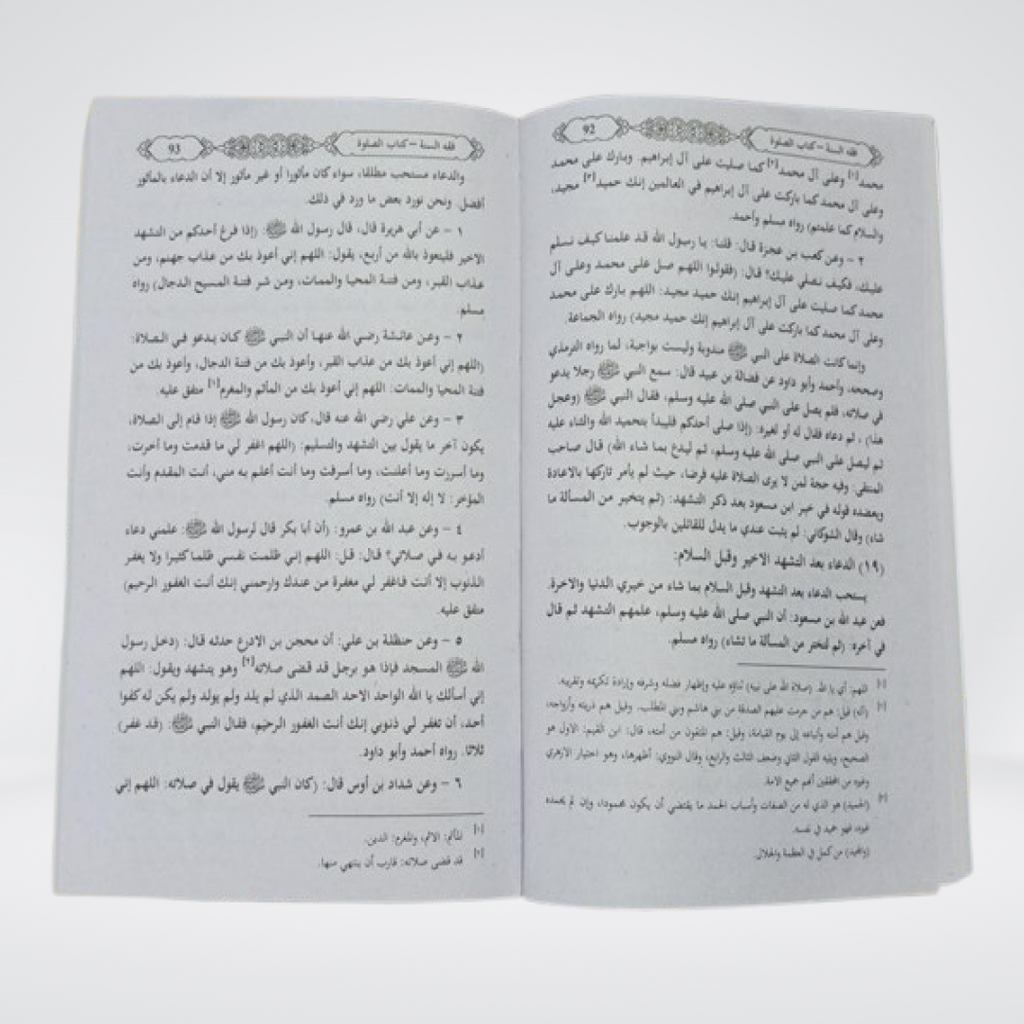 92
فقه السنة – كتاب الصلوة
محمد[١] وعلى آل محمد[٢] كما صليت على آل إبراهيم. وبارك على محمد
وعلى آل محمد كما باركت على آل إبراهيم في العالمين إنك حميد[٣] مجيد،
والسلام كما علمتم) رواه مسلم وأحمد.
٢ – وعن كعب بن عجزة قال: قلنا: يا رسول الله قد علمنا كيف نسلم
عليك، فكيف نصلي عليك؟ قال: (فقولوا اللهم صل على محمد وعلى آل
محمد كما صليت على آل إبراهيم إنك حميد مجيد: اللهم بارك على محمد
وعلى آل محمد كما باركت على آل إبراهيم إنك حميد مجيد) رواه الجماعة.
وإنما كانت الصلاة على النبي ﷺ مندوبة وليست بواجبة، لما رواه الترمذي
وصححه، وأحمد وأبو داود عن فضالة بن عبيد قال: سمع النبي ﷺ رجلا يدعو
في صلاته، فلم يصل على النبي صلى الله عليه وسلم، فقال النبي ﷺ (وعجل
هذا)، ثم دعاه فقال له أو لغيره: (إذا صلى أحدكم فليبدأ بتحميد الله والثناء عليه
ثم ليصل على النبي صلى الله عليه وسلم، ثم ليدع بما شاء الله) قال صاحب
المنتقى: وفيه حجة لمن لا يرى الصلاة عليه فرضا، حيث لم يأمر تاركها بالاعادة
ويعضده قوله في خبر ابن مسعود بعد ذكر التشهد: (ثم يتخير من المسألة ما
شاء) وقال الشوكاني: لم يثبت عندي ما يدل للقائلين بالوجوب.
(١٩) الدعاء بعد التشهد الاخير وقبل السلام:
يستحب الدعاء بعد التشهد وقبل السلام بما شاء من خيري الدنيا والاخرة.
فعن عبد الله بن مسعود: أن النبي صلى الله عليه وسلم، علمهم التشهد ثم قال
في آخره: (ثم لتختر من المسألة ما تشاء) رواه مسلم.
[١] اللهم: أي يا الله. (صلاة الله على نبيه) ثناؤه عليه وإظهار فضله وشرفه وإرادة تكريمه وتقريبه.
[٢] (آله) قيل: هم من حرمت عليهم الصدقة من بني هاشم وبني المطلب. وقيل هم ذريته وأزواجه،
وقيل هم أمته وأتباعه إلى يوم القيامة، وقيل: هم المتقون من أمته، قال: ابن القيم: الاول هو
الصحيح، ويليه القول الثاني وضعف الثالث والرابع، وقال النووي: أظهرها، وهو اختيار الازهري
وغيره من المحققين أنهم جميع الامة.
[٣] (الحميد) هو الذي له من الصفات وأسباب الحمد ما يقتضي أن يكون محمودا، وإن لم يحمده
غيره، فهو حميد في نفسه.
(والمجيد) من كمل في العظمة والجلال.
فقه السنة – كتاب الصلوة
93
والدعاء مستحب مطلقا، سواء كان مأثورا أو غير مأثور إلا أن الدعاء بالمأثور
أفضل. ونحن نورد بعض ما ورد في ذلك.
١ – عن أبي هريرة قال، قال رسول الله ﷺ: (إذا فرغ أحدكم من التشهد
الاخير فليتعوذ بالله من أربع، يقول: اللهم إني أعوذ بك من عذاب جهنم، ومن
عذاب القبر، ومن فتنة المحيا والممات، ومن شر فتنة المسيح الدجال) رواه
مسلم.
٢ – وعن عائشة رضي الله عنها أن النبي ﷺ كان يدعو في الصلاة:
(اللهم إني أعوذ بك من عذاب القبر، وأعوذ بك من فتنة الدجال، وأعوذ بك من
فتنة المحيا والممات: اللهم إني أعوذ بك من المأثم والمغرم[١] متفق عليه.
٣ – وعن علي رضي الله عنه قال، كان رسول الله ﷺ إذا قام إلى الصلاة،
يكون آخر ما يقول بين التشهد والتسليم: (اللهم اغفر لي ما قدمت وما أخرت،
وما أسررت وما أعلنت، وما أسرفت وما أنت أعلم به مني، أنت المقدم وأنت
المؤخر: لا إله إلا أنت) رواه مسلم.
٤ – وعن عبد الله بن عمرو: (أن أبا بكر قال لرسول الله ﷺ: علمني دعاء
أدعو به في صلاتي؟ قال: قل: اللهم إني ظلمت نفسي ظلما كثيرا ولا يغفر
الذنوب إلا أنت فاغفر لي مغفرة من عندك وارحمني إنك أنت الغفور الرحيم)
متفق عليه.
٥ – وعن حنظلة بن علي: أن محجن بن الادرع حدثه قال: (دخل رسول
الله ﷺ المسجد فإذا هو برجل قد قضى صلاته[٢] وهو يتشهد ويقول: اللهم
إني أسألك يا الله الواحد الاحد الصمد الذي لم يلد ولم يولد ولم يكن له كفوا
أحد، أن تغفر لي ذنوبي إنك أنت الغفور الرحيم، فقال النبي ﷺ: (قد غفر)
ثلاثا. رواه أحمد وأبو داود.
٦ – وعن شداد بن أوس قال: (كان النبي ﷺ يقول في صلاته: اللهم إني
[١] المأثم: الاثم، والمغرم: الدين.
[٢] قد قضى صلاته: قارب أن ينتهي منها.